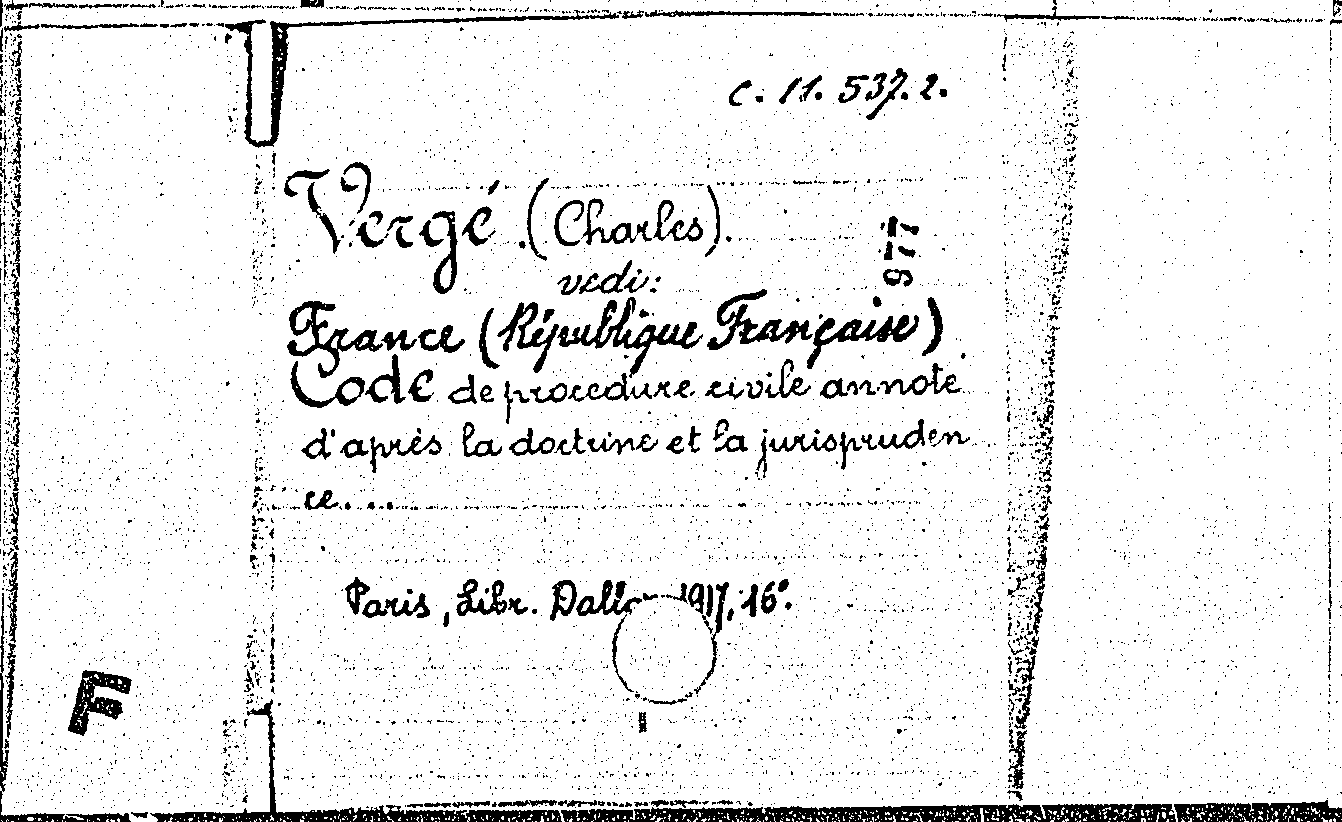 C. 11. 537. 2.
Vergé (Charles).
977
vedi:
France (République Française)
Code de procedure civile annoté
d'après la doctrine et la jurispruden
ce....
Paris, Libr. 1917, 16°.
F